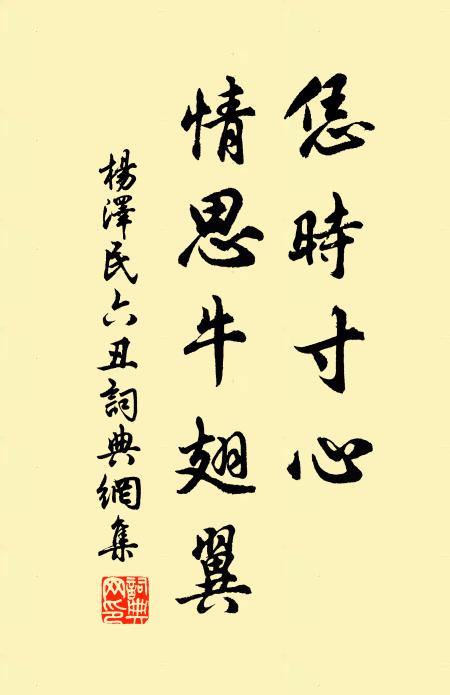 恁時寸心
情思牛翅翼
楊澤民六丑詞典網集
詞典网印